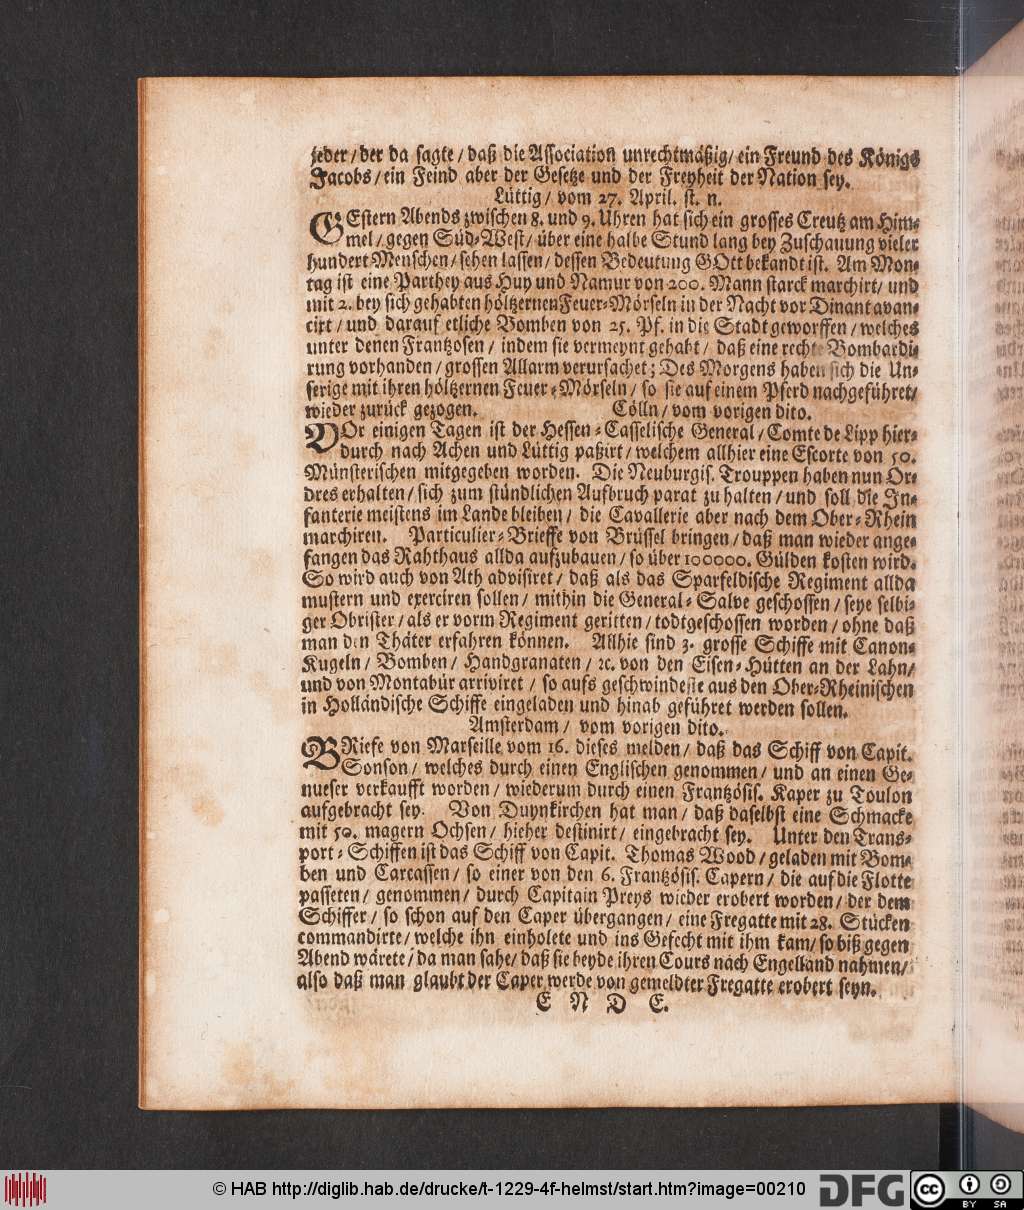 jeder / der da sagte / daß die Association unrechtmäßig / ein Freund des Königs
Jacobs / ein Feind aber der Gesetze und der Freyheit der Nation sey.
Lüttig / vom 27. April. st. n.
GEstern Abends zwischen 8. und 9. Uhren hat sich ein grosses Creutz am Him-
mel / gegen Süd-West / über eine halbe Stund lang bey Zuschauung vieler
hundert Menschen / sehen lassen / dessen Bedeutung GOtt bekandt ist. Am Mon-
tag ist eine Parthey aus Huy und Namur von 200. Mann starck marchirt / und
mit 2. bey sich gehabten höltzernen Feuer-Mörseln in der Nacht vor Dinant avan-
cirt / und darauf etliche Bomben von 25. Pf. in die Stadt geworffen / welches
unter denen Frantzosen / indem sie vermeynt gehabt / daß eine rechte Bombardi-
rung vorhanden / grossen Allarm verursachet; Des Morgens haben sich die Un-
serige mit ihren höltzernen Feuer-Mörseln / so sie auf einem Pferd nachgeführet /
wieder zurück gezogen. Cölln / vom vorigen dito.
VOr einigen Tagen ist der Hessen-Casselische General / Comte de Lipp hier-
durch nach Achen und Lüttig paßirt / welchem allhier eine Escorte von 50.
Münsterischen mitgegeben worden. Die Neuburgis. Trouppen haben nun Or-
dres erhalten / sich zum stündlichen Aufbruch parat zu halten / und soll die In-
fanterie meistens im Lande bleiben / die Cavallerie aber nach dem Ober-Rhein
marchiren. Particulier-Brieffe von Brüssel bringen / daß man wieder ange-
fangen das Rahthaus allda aufzubauen / so über 100000. Gülden kosten wird.
So wird auch von Ath advisiret / daß als das Sparfeldische Regiment allda
mustern und exerciren sollen / mithin die General-Salve geschossen / seye selbi-
ger Obrister / als er vorm Regiment geritten / todtgeschossen worden / ohne daß
man den Thäter erfahren können. Allhie sind 3. grosse Schiffe mit Canon-
Kugeln / Bomben / Handgranaten / ꝛc. von den Eisen-Hütten an der Lahn /
und von Montabür arriviret / so aufs geschwindeste aus den Ober-Rheinischen
in Holländische Schiffe eingeladen und hinab geführet werden sollen.
Amsterdam / vom vorigen dito.
BRiefe von Marseille vom 16. dieses melden / daß das Schiff von Capit.
Sonson / welches durch einen Englischen genommen / und an einen Ge-
nueser verkaufft worden / wiederum durch einen Frantzösis. Kaper zu Toulon
aufgebracht sey. Von Duynkirchen hat man / daß daselbst eine Schmacke
mit 50. magern Ochsen / hieher destinirt / eingebracht sey. Unter den Trans-
port-Schiffen ist das Schiff von Capit. Thomas Wood / geladen mit Bom-
ben und Carcassen / so einer von den 6. Frantzösis. Capern / die auf die Flotte
passeten / genommen / durch Capitain Preys wieder erobert worden / der dem
Schiffer / so schon auf den Caper übergangen / eine Fregatte mit 28. Stücken
commandirte / welche ihn einholete und ins Gefecht mit ihm kam / so biß gegen
Abend wärete / da man sahe / daß sie beyde ihren Cours nach Engelland nahmen /
also daß man glaubt der Caper werde von gemeldter Fregatte erobert seyn.
E N D E.
© HAB http://diglib.hab.de/drucke/t-1229-4f-helmst/start.htm?image=00210
DFG
cc BY SA